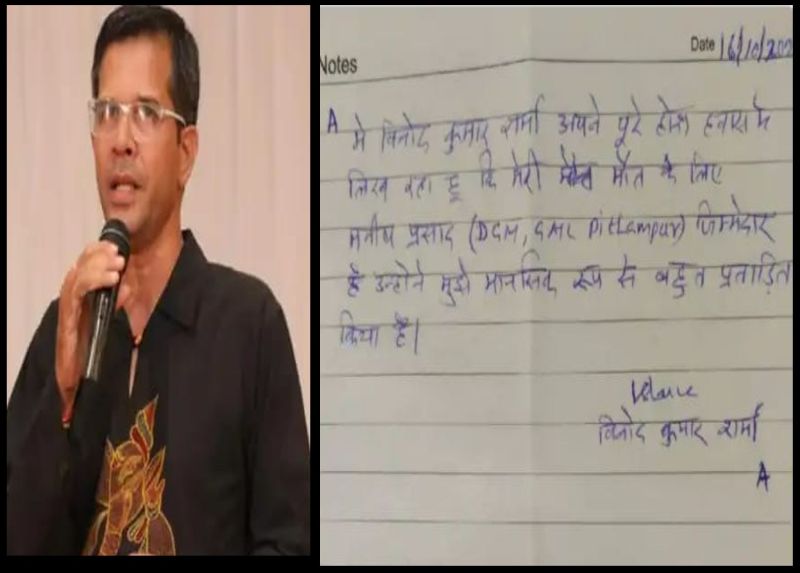 Notes
Date 16/10/202
A
मे विनोद कुमार शर्मा अपने पूरे होश हवास मे
लिख रहा हू कि मेरी मौत के लिए
मनीष प्रसाद (DGM, GMC Pithampur) जिम्मेदार
है उन्होने मुझे मानसिक रूप से बहुत प्रताड़ित
किया है।
विनोद कुमार शर्मा
A